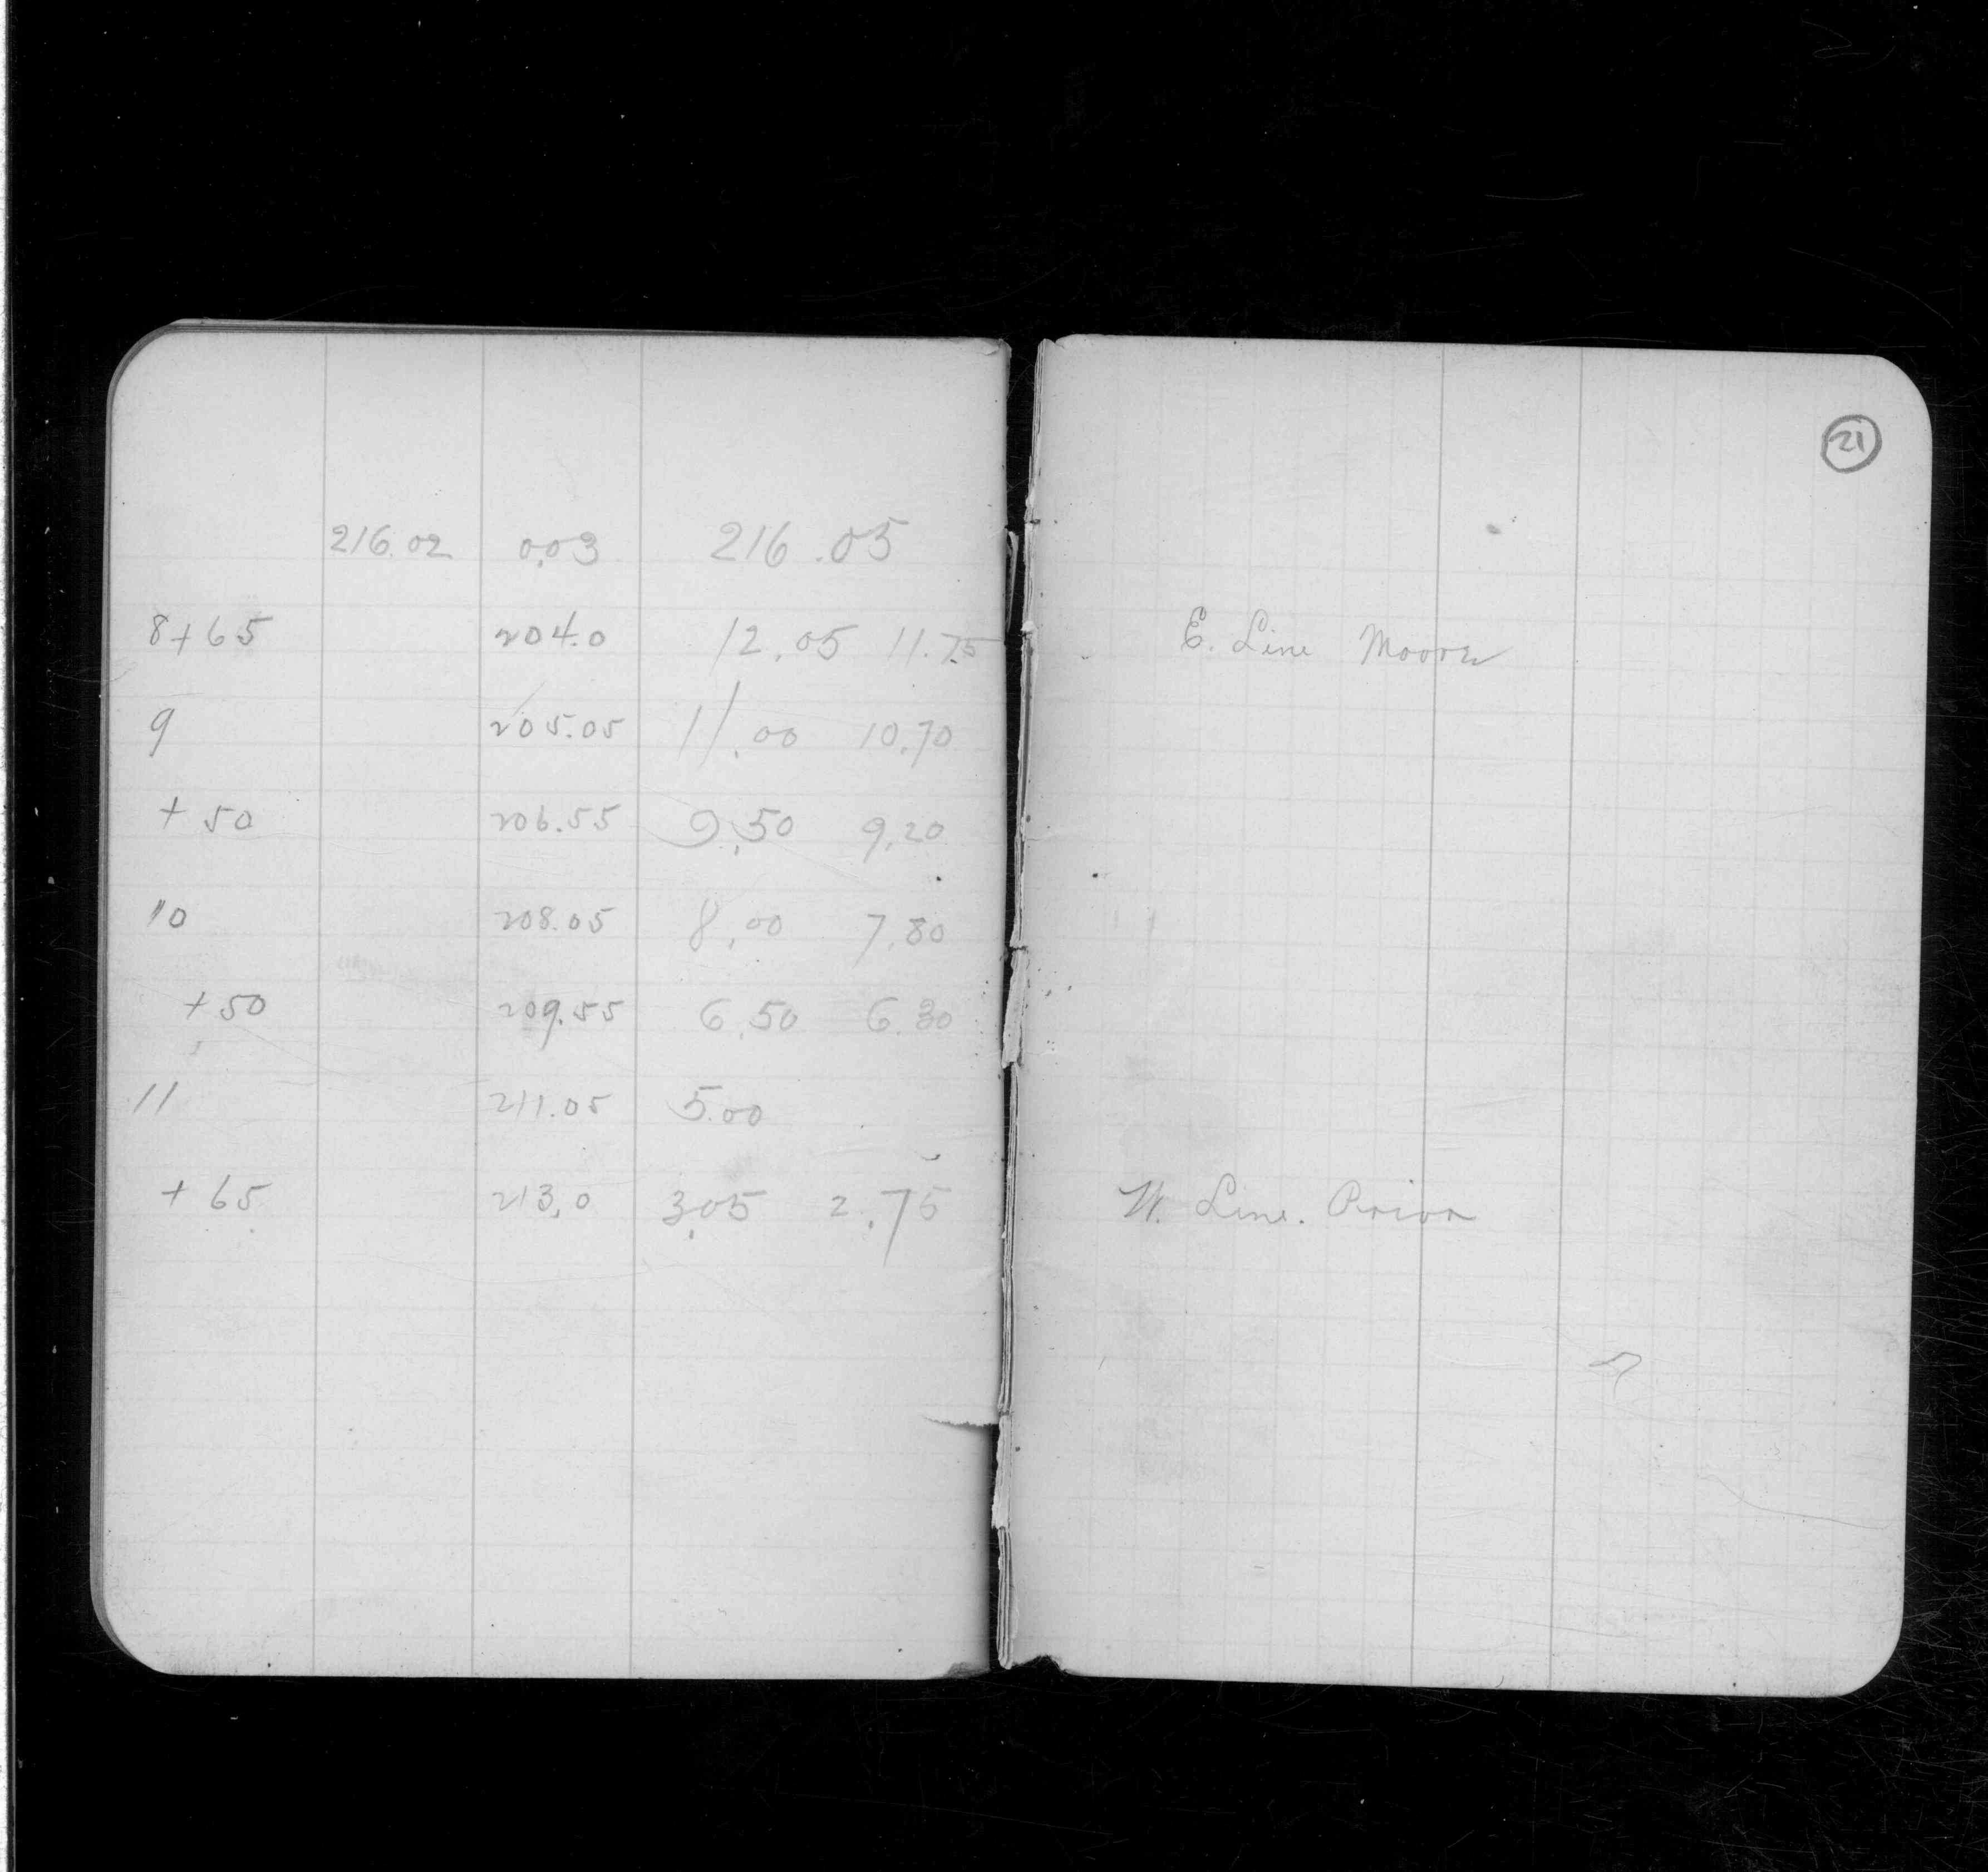 21
216.02 0.03 216.05
8+65 204.0 12.05 11.75 E. Line Moore
9 205.05 11.00 10.70
+50 206.55 9.50 9.20
10 208.05 8.00 7.80
+50 209.55 6.50 6.30
11 211.05 5.00
+65 213.0 3.05 2.75 W. Line. Prior